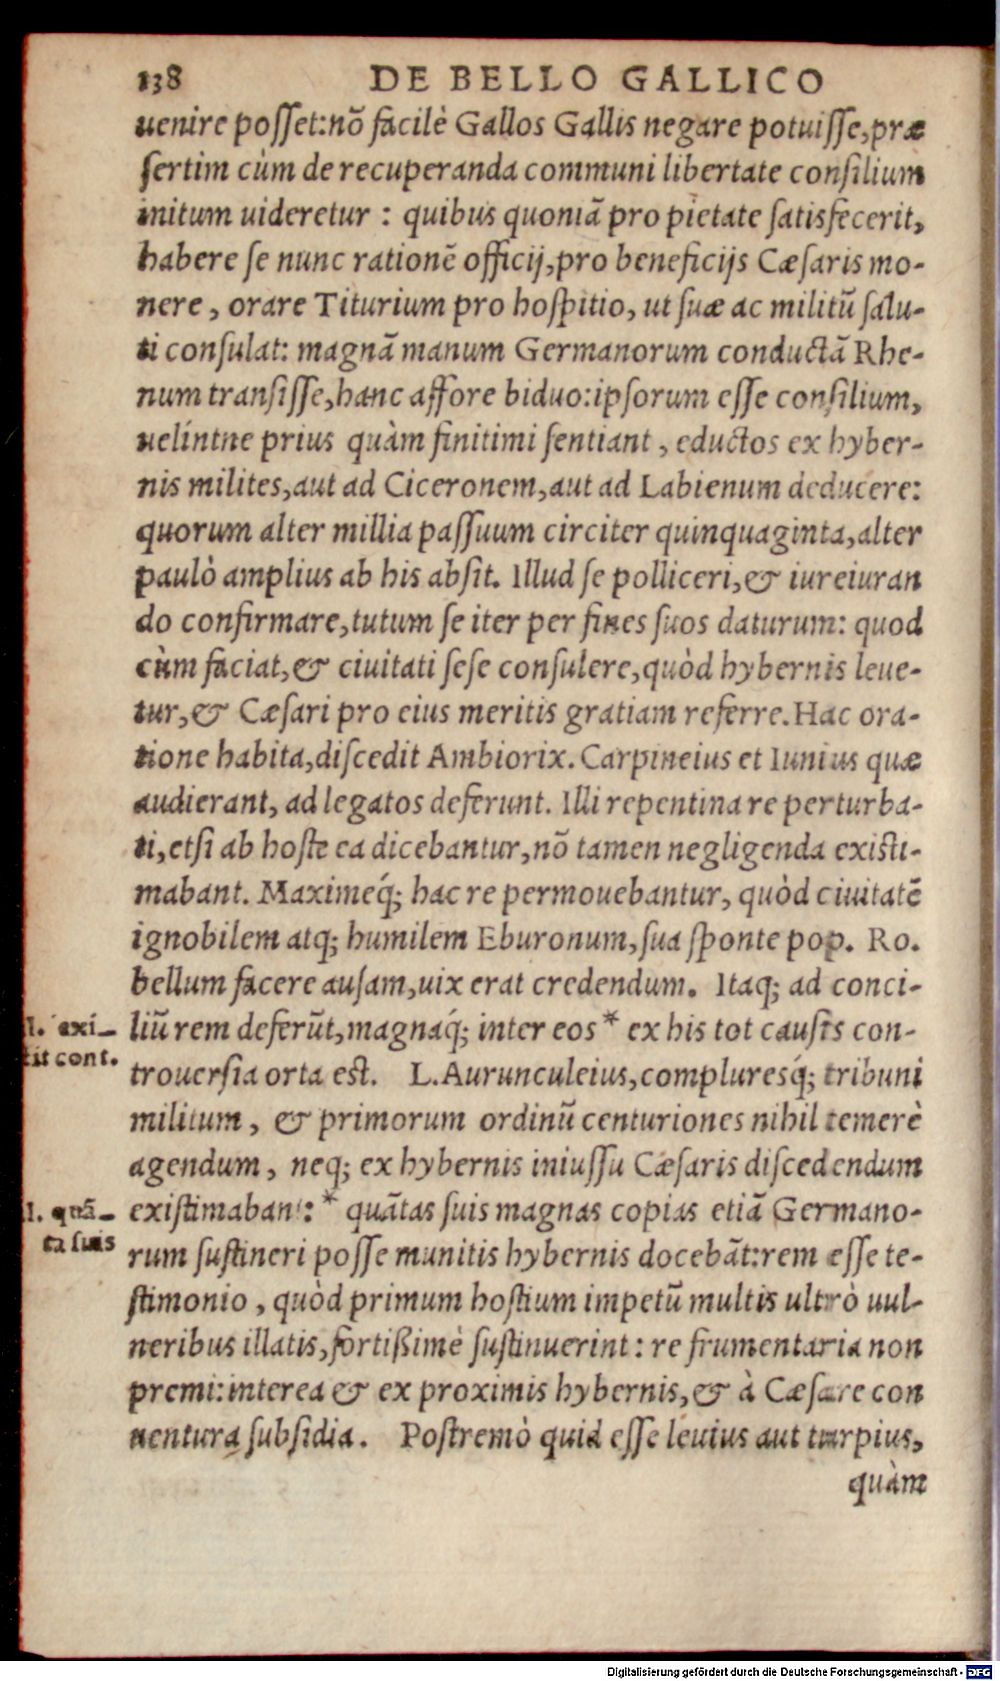 138 DE BELLO GALLICO
uenire posset:nõ facilè Gallos Gallis negare potuisse,præ
sertim cùm de recuperanda communi libertate consilium
initum uideretur : quibus quoniã pro pietate satisfecerit,
habere se nunc rationẽ officij,pro beneficijs Cæsaris mo-
nere, orare Titurium pro hospitio, ut suæ ac militũ salu-
ti consulat: magnã manum Germanorum conductã Rhe-
num transisse,hanc affore biduo:ipsorum esse consilium,
uelíntne prius quàm finitimi sentiant, eductos ex hyber-
nis milites,aut ad Ciceronem,aut ad Labienum deducere:
quorum alter millia passuum circiter quinquaginta,alter
paulò amplius ab his absit. Illud se polliceri,& iureiuran
do confirmare,tutum se iter per fines suos daturum: quod
cùm faciat,& ciuitati sese consulere,quòd hybernis leue-
tur,& Cæsari pro eius meritis gratiam referre.Hac ora-
tione habita,discedit Ambiorix. Carpineius et Iunius quæ
audierant, ad legatos deferunt. Illi repentina re perturba-
ti,etsi ab hoste ea dicebantur,nõ tamen negligenda existi-
mabant. Maximeq́; hac re permouebantur, quòd ciuitatẽ
ignobilem atq; humilem Eburonum,sua sponte pop. Ro.
bellum facere ausam,uix erat credendum. Itaq; ad conci-
liũ rem deferũt,magnaq́; inter eos * ex his tot causis con-
trouersia orta est. L.Aurunculeius,compluresq́; tribuni
militum, & primorum ordinũ centuriones nihil temerè
agendum, neq; ex hybernis iniussu Cæsaris discedendum
existimabant: * quãtas suis magnas copias etiã Germano-
rum sustineri posse munitis hybernis docebãt:rem esse te-
stimonio, quòd primum hostium impetũ multis ultrò uul-
neribus illatis,fortißimè sustinuerint: re frumentaria non
premi:interea & ex proximis hybernis,& à Cæsare con
uentura subsidia. Postremò quid esse leuius aut turpius,
quàm
l. exi-
tit cont.
l. quã-
ta suis
Digitalisierung gefördert durch die Deutsche Forschungsgemeinschaft - DFG